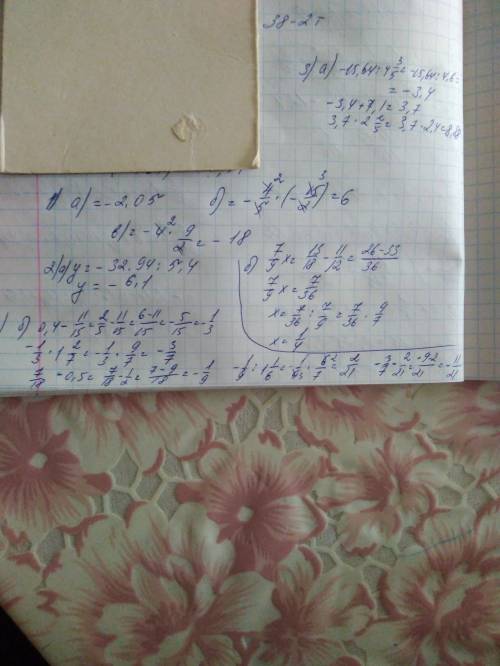 38-2т
3) а) -15,64 : 4 3/5 = -15,64 : 4,6 =
= -3,4
-3,4 + 7,1 = 3,7
3,7 · 2 2/5 = 3,7 · 2,4 = 8,88
1) а) = -2,05 б) = - 4/5 ² · (- 15/2 ³) = 6
в) = -4² · 9/2 = -18
2) а) у = -32,94 : 5,4
у = -6,1
б) 7/9 х = 13/18 - 11/12 = 26-33/36
7/9 х = 7/36
х = 7/36 : 7/9 = 7/36 · 9/7
х = 1/4
) б) 0,4 - 11/15 = 2/5 - 11/15 = 6-11/15 = -5/15 = -1/3
-1/3 · 1 2/7 = -1/3 · 9/7 = -3/7
7/18 - 0,5 = 7/18 - 1/2 = 7-9/18 = -1/9
-1/9 : 1 1/6 = 6/7 = 2/21
-3/7 2/21 = 9 2/21 = -11/21